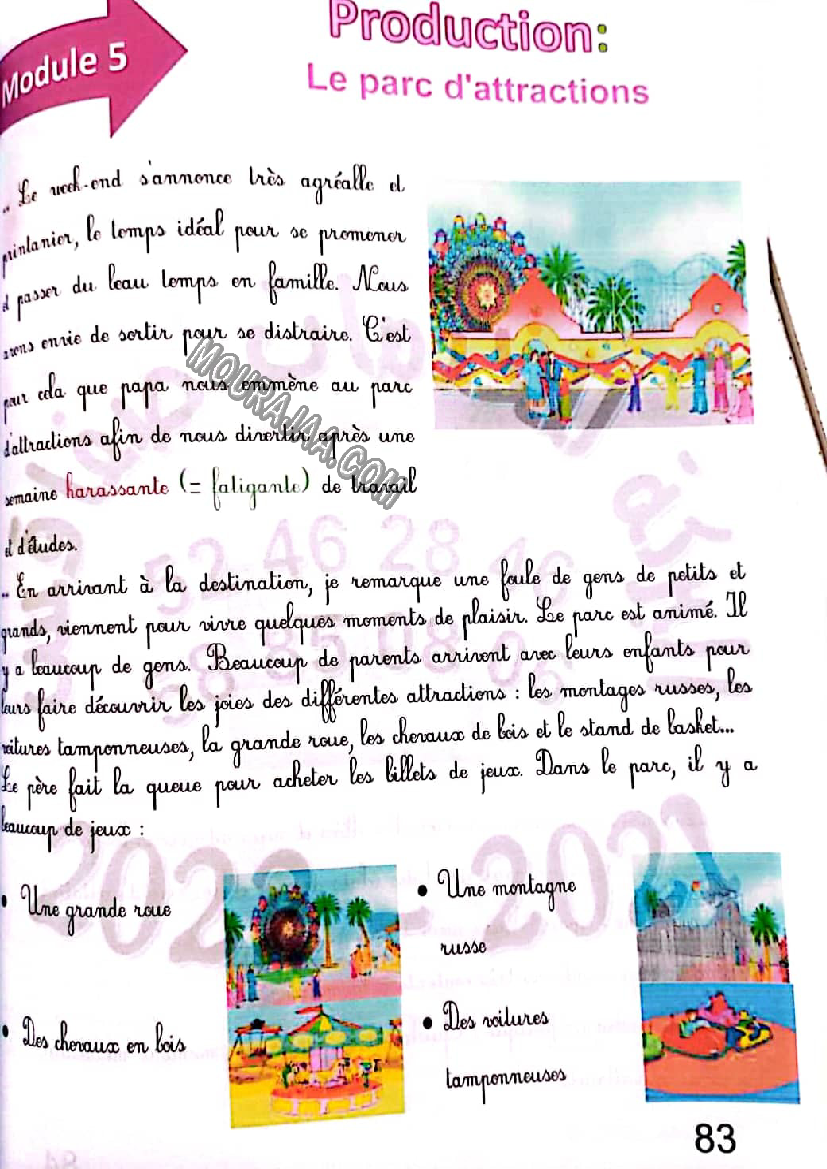 Production:
Module 5
Le parc d'attractions
.. Le week-end s'annonce très agréable et
printanier, le temps idéal pour se promener
et passer du beau temps en famille. Nous
avons envie de sortir pour se distraire. C'est
pour cela que papa nous emmène au parc
d'attractions afin de nous divertir après une
semaine harassante (= fatigante) de travail
et d'études.
.. En arrivant à la destination, je remarque une foule de gens de petits et
grands, viennent pour vivre quelques moments de plaisir. Le parc est animé. Il
y a beaucoup de gens. Beaucoup de parents arrivent avec leurs enfants pour
leurs faire découvrir les joies des différentes attractions : les montages russes, les
voitures tamponneuses, la grande roue, les chevaux de bois et le stand de basket...
Le père fait la queue pour acheter les billets de jeux. Dans le parc, il y a
beaucoup de jeux :
• Une grande roue
• Une montagne
russe
• Des chevaux en bois
• Des voitures
tamponneuses
MOURAJAA.COM
52 46 28
58 85 08 06
- 2021
83